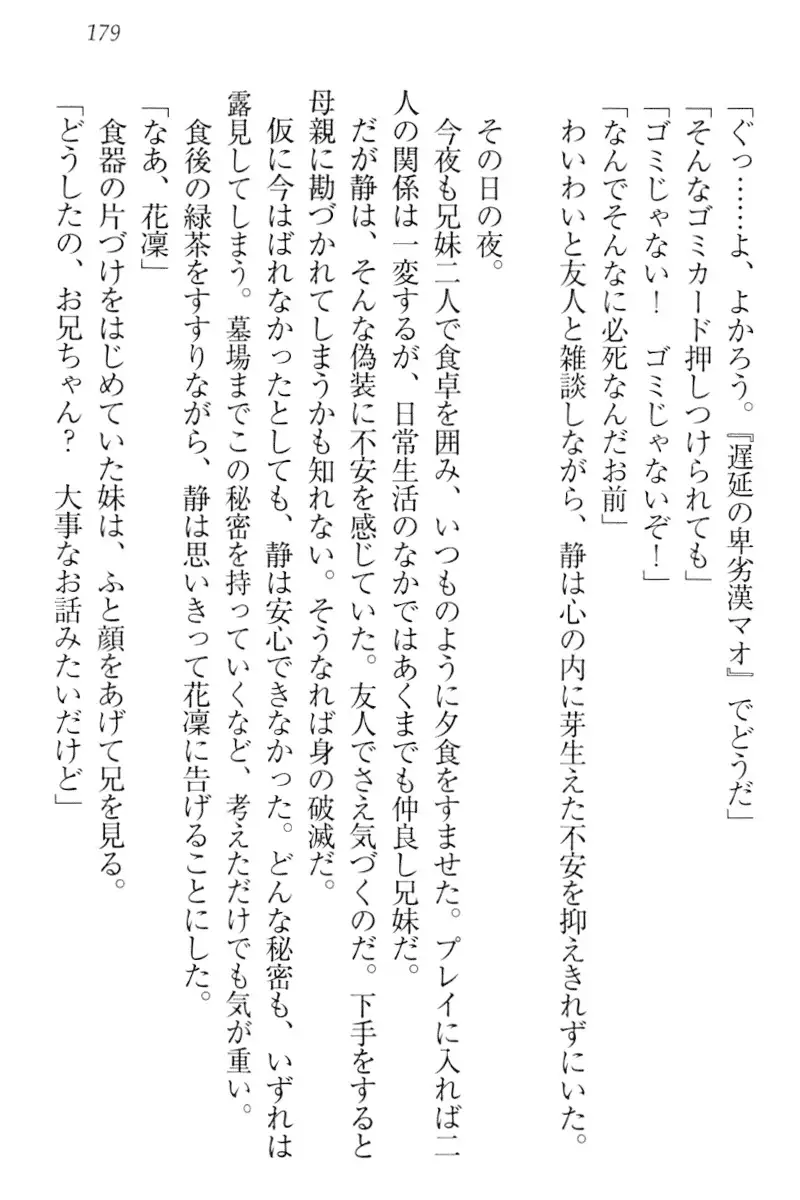 179
「ぐっ……よ、よかろう。『遅延の卑劣漢マオ』でどうだ」
「そんなゴミカード押しつけられても」
「ゴミじゃない！　ゴミじゃないぞ！」
「なんでそんなに必死なんだお前」
わいわいと友人と雑談しながら、静は心の内に芽生えた不安を抑えきれずにいた。
その日の夜。
今夜も兄妹二人で食卓を囲み、いつものように夕食をすませた。プレイに入れば二
人の関係は一変するが、日常生活のなかではあくまでも仲良し兄妹だ。
だが静は、そんな偽装に不安を感じていた。友人でさえ気づくのだ。下手をすると
母親に勘づかれてしまうかも知れない。そうなれば身の破滅だ。
仮に今はばれなかったとしても、静は安心できなかった。どんな秘密も、いずれは
露見してしまう。墓場までこの秘密を持っていくなど、考えただけでも気が重い。
食後の緑茶をすすりながら、静は思いきって花凛に告げることにした。
「なあ、花凛」
食器の片づけをはじめていた妹は、ふと顔をあげて兄を見る。
「どうしたの、お兄ちゃん？　大事なお話みたいだけど」